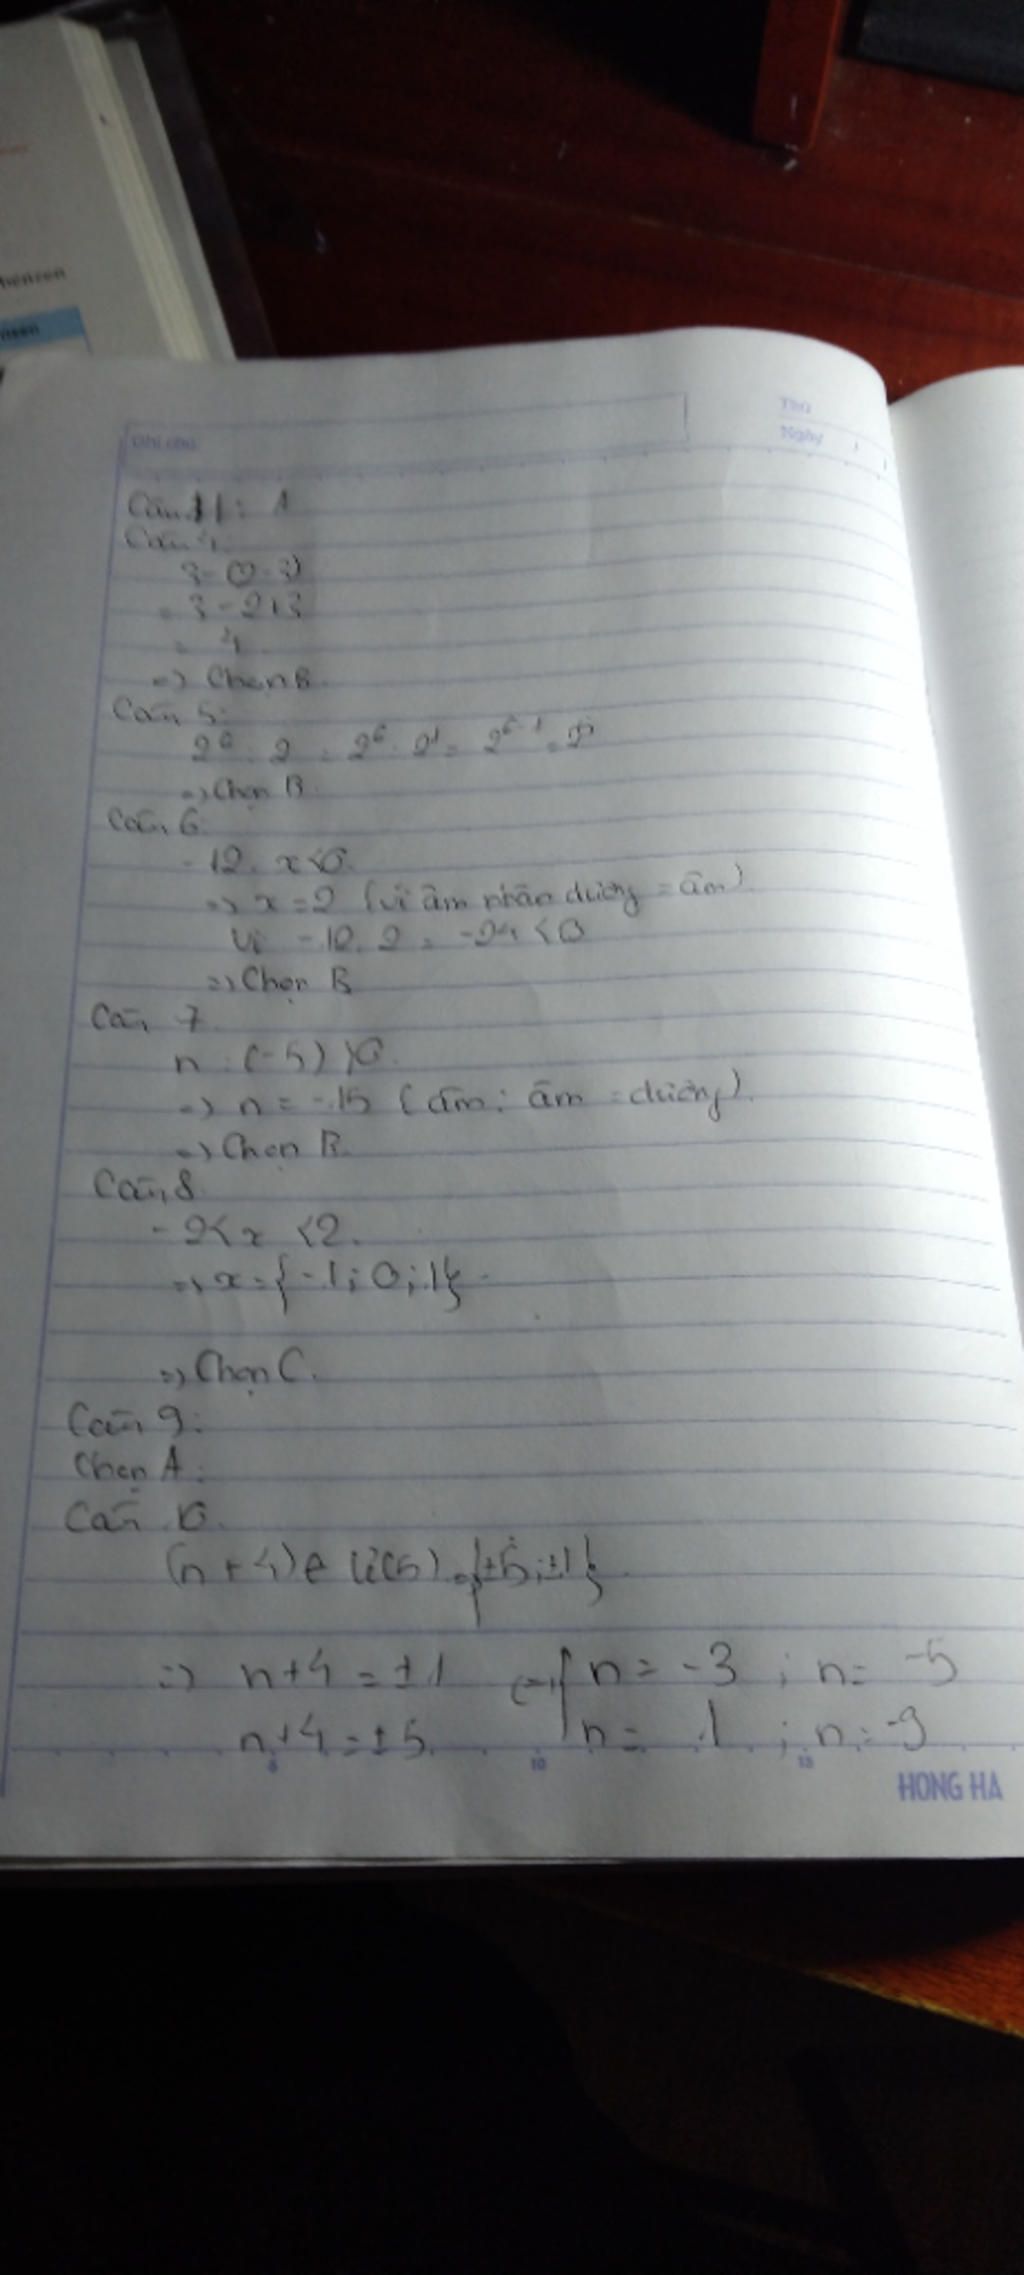 Ghi chú
Thứ
Ngày
Câu 11: A
Câu 4:
3-(2-3)
= 3-2+3
= 4
=> Chọn B.
Câu 5:
2⁶ : 2 = 2⁶ : 2¹ = 2⁶⁻¹ = 2⁵
=> Chọn B.
Câu 6:
-12. x<0.
=> x=2 (vì âm nhân dương = âm)
Vì -12. 2 = -24 <0
=> Chọn B
Câu 7
n : (-5) >0.
=> n = -15 (âm : âm = dương)
=> Chọn B.
Câu 8
-2< x <2.
=> x={-1; 0; 1}.
=> Chọn C.
Câu 9:
Chọn A.
Câu 10.
(n + 4) ∈ Ư(5) = {±5; ±1}.
=> n+4 = ±1 <=> { n = -3 ; n = -5
n+4 = ±5. n = 1 ; n = -9
5 10 15
HONG HA